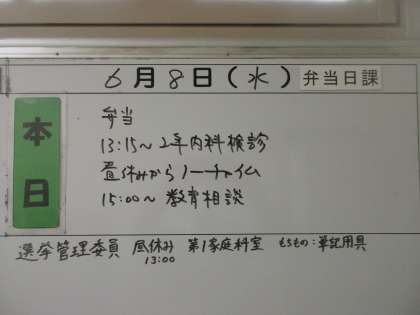 6月8日(水) 弁当日課
本日
弁当
13:15〜2年内科検診
昼休みからノーチャイム
15:00〜教育相談
選挙管理委員 昼休み 第1家庭科室 もちもの:筆記用具
13:00